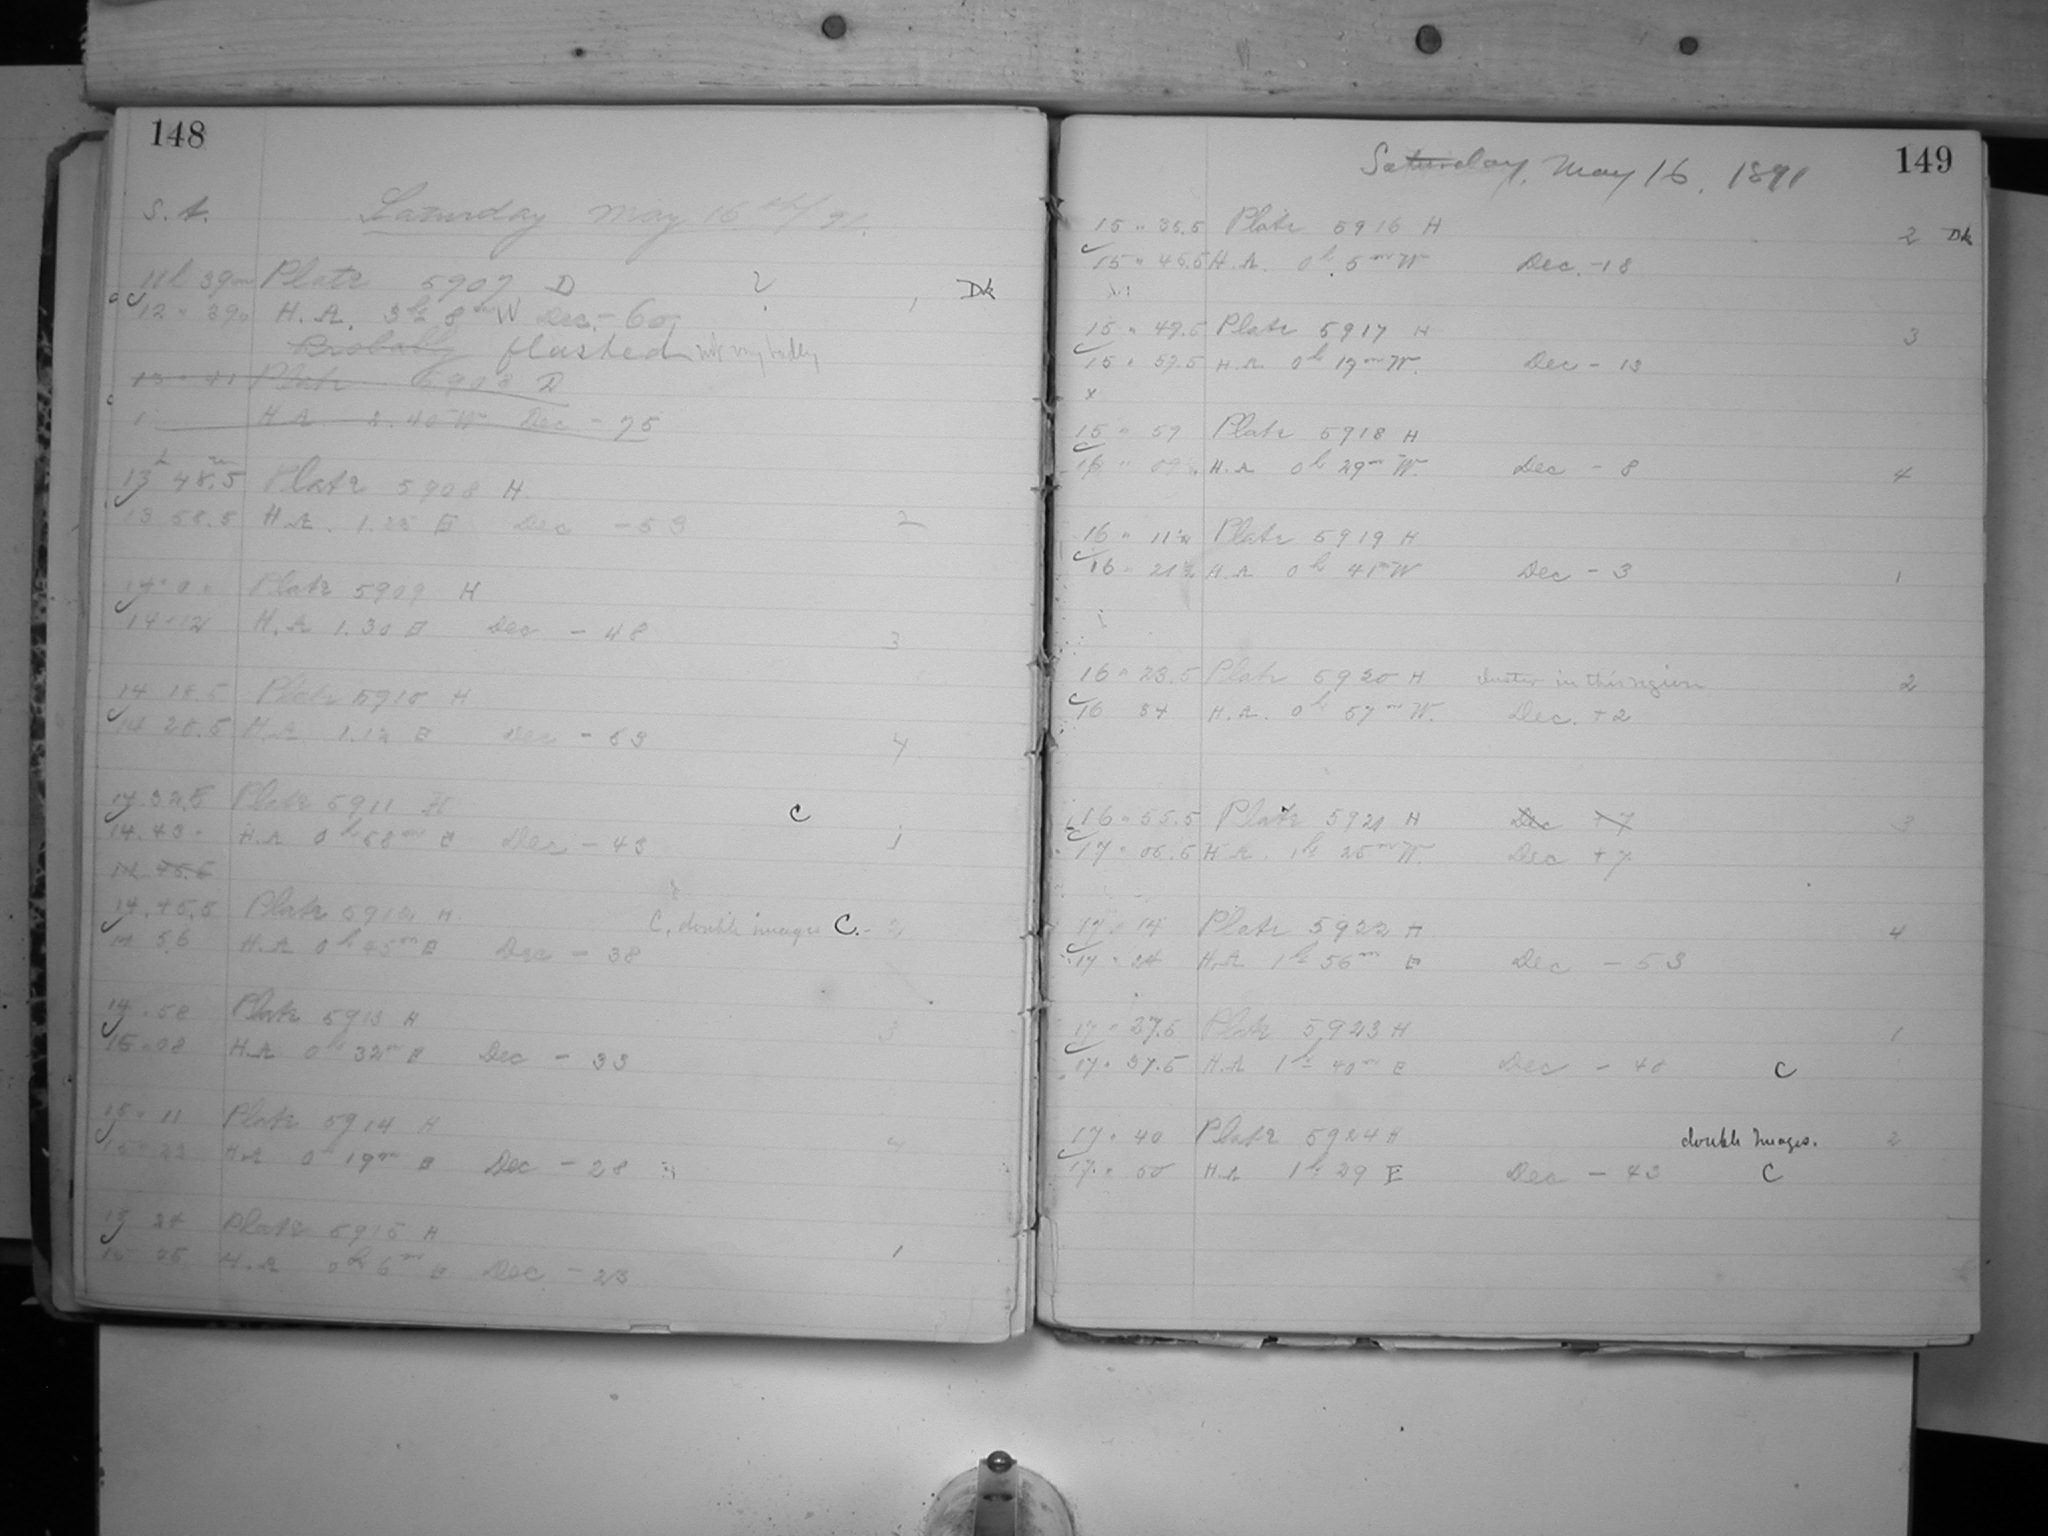 148
S. A. Saturday May 16 th/91.
11h 39m Plate 5907 D 2 1 Dk
12 " 39 " H.A. 3h 8m W Dec. - 60
Probably flashed not very badly
13 " 41 Plate 5908 D
H.A. 2. 40 W Dec - 75
13h 48.5m Plate 5908 H
13 58.5 H.A. 1.25 E Dec - 53 2
14 " 0 " Plate 5909 H
14 " 12 H.A 1.30 E Dec - 48 3
14 18.5 Plate 5910 H
14 28.5 H.A 1.12 E Dec - 53 4
14 32.5 Plate 5911 H C
14.43 " H.A 0h 58m E Dec - 43 1
14 45.5
14.45.5 Plate 5912 H C, double images C. - 2
14 56 H.A 0h 45m E Dec - 38
14 . 58 Plate 5913 H 3
15 " 08 H.A 0h 32m E Dec - 33
15 " 11 Plate 5914 H 4
15 " 22 H.A 0h 19m E Dec - 28
15 24 Plate 5915 H
H.A 0h 6m E Dec - 23 1
149
Saturday, May 16, 1891
15 " 35.5 Plate 5916 H 2 Dk
15 " 45.5 H.A. 0h. 5m W Dec. - 18
15 " 47.5 Plate 5917 H 3
15 " 57.5 H.A 0h 17m W. Dec - 13
x
15 " 59 Plate 5918 H
16 " 09 H.A 0h 29m W. Dec - 8 4
16 " 11½ Plate 5919 H
16 " 21½ H.A 0h 41m W Dec - 3 1
16 " 23.5 Plate 5920 H cluster in this region 2
16 34 H.A. 0h 57m W. Dec. + 2
16 " 55.5 Plate 5921 H Dec + 7 3
17 " 05.5 H.A. 1h 25m W. Dec + 7
17 " 14 Plate 5922 H 4
17 " 24 H.A 1h 56m E Dec - 53
17 " 27.5 Plate 5923 H 1
17 " 37.5 H.A 1h 40m E Dec - 48 C
17 " 40 Plate 5924 H double images. 2
17 " 50 H.A 1h 29 E Dec - 43 C